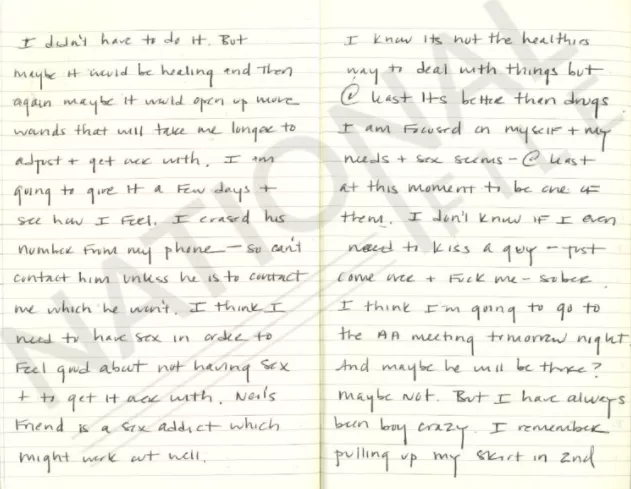 I didn't have to do it. But
maybe it would be healing and then
again maybe it would open up more
wounds that will take me longer to
adjust + get over with. I am
going to give it a few days +
see how I feel. I erased his
number from my phone — so can't
contact him unless he is to contact
me which he won't. I think I
need to have sex in order to
feel good about not having sex
+ to get it over with.
friend is a sex addict which
might work out well.
I know its not the healthies
way to deal with things but
@ least its better than drugs.
I am focused on myself + my
needs + sex seems - @ least
at this moment to be one of
them. I don't know if I even
need to kiss a guy - just
come over + fuck me - sober.
I think I'm going to go to
the AA meeting tomorrow night.
And maybe he will be there?
maybe not. But I have always
been boy crazy. I remember
pulling up my skirt in 2nd
NATIONAL
FILE